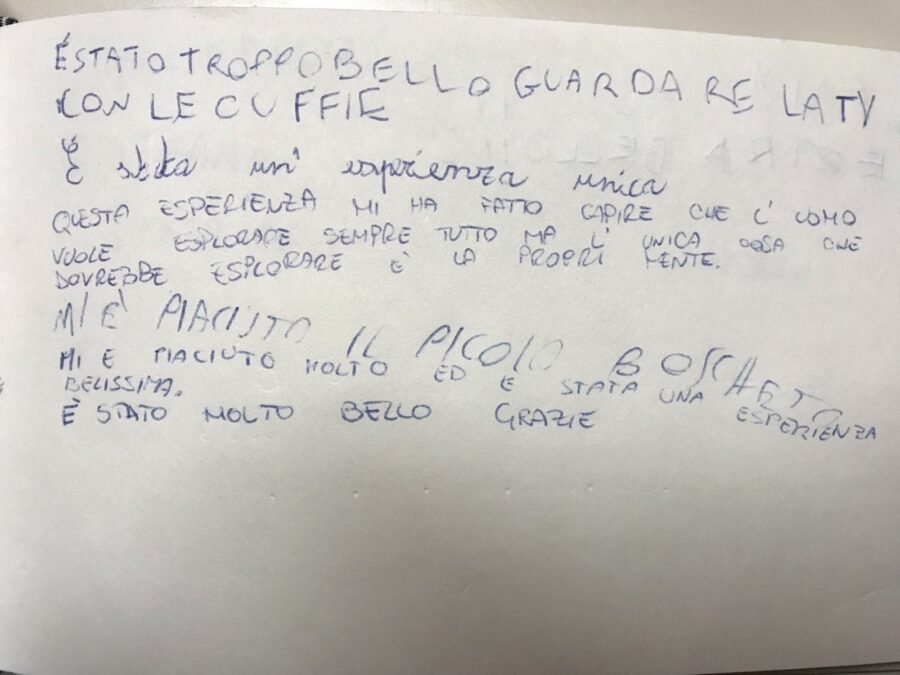 È STATO TROPPO BELLO GUARDARE LA TV
CON LE CUFFIE
È stata un' esperienza unica
QUESTA ESPERIENZA MI HA FATTO CAPIRE CHE L'UOMO
VUOLE ESPLORARE SEMPRE TUTTO MA L'UNICA COSA CHE
DOVREBBE ESPLORARE È LA PROPRI MENTE.
MI E' PIACIUTO IL PICOLO BOSCHETO
MI E PIACIUTO MOLTO ED E STATA UNA ESPERIENZA
BELISSIMA.
È STATO MOLTO BELLO GRAZIE